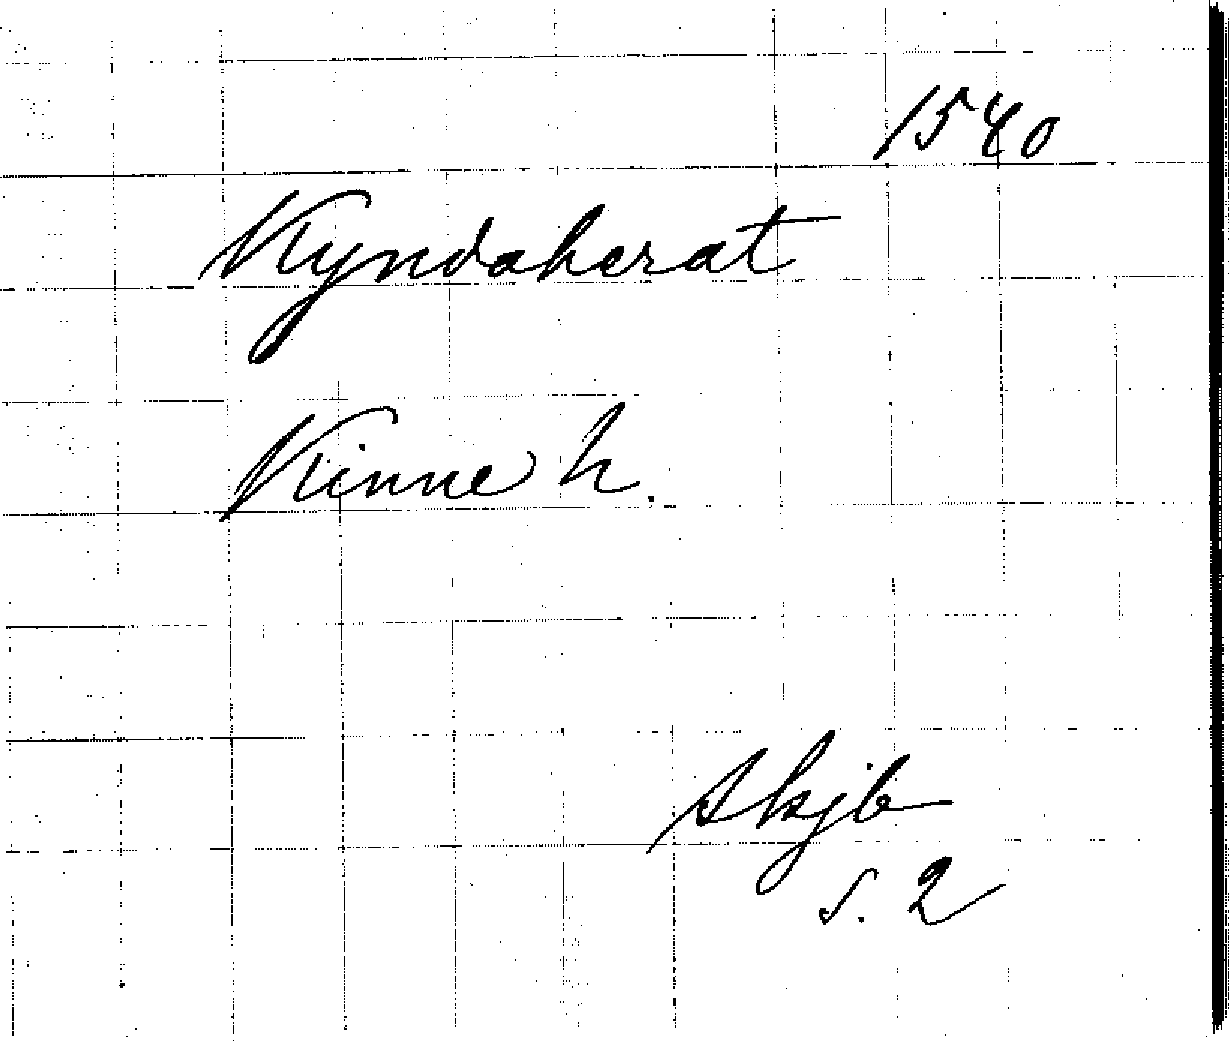 1540
Kyndaherat
Kinne h.
Skjb
s. 2